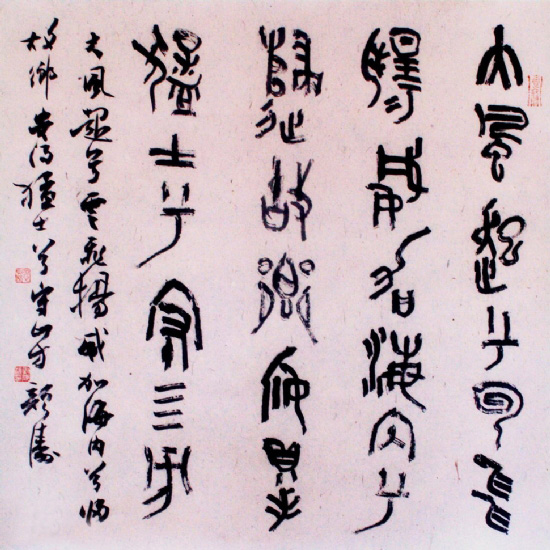 大風起兮雲飛
揚威加海內兮
歸故鄉安得
猛士兮守四方
大風起兮雲飛揚威加海內兮歸
故鄉安得猛士兮守四方